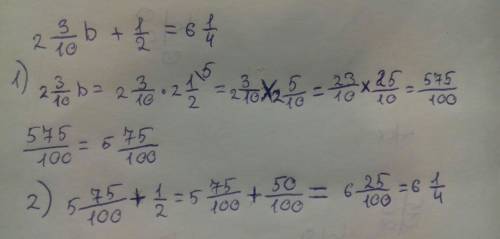 2 3/10 b + 1/2 = 6 1/4
1) 2 3/10 b = 2 3/10 · 2 1/2 \5 = 2 3/10 × 2 5/10 = 23/10 × 25/10 = 575/100
575/100 = 5 75/100
2) 5 75/100 + 1/2 = 5 75/100 + 50/100 = 6 25/100 = 6 1/4